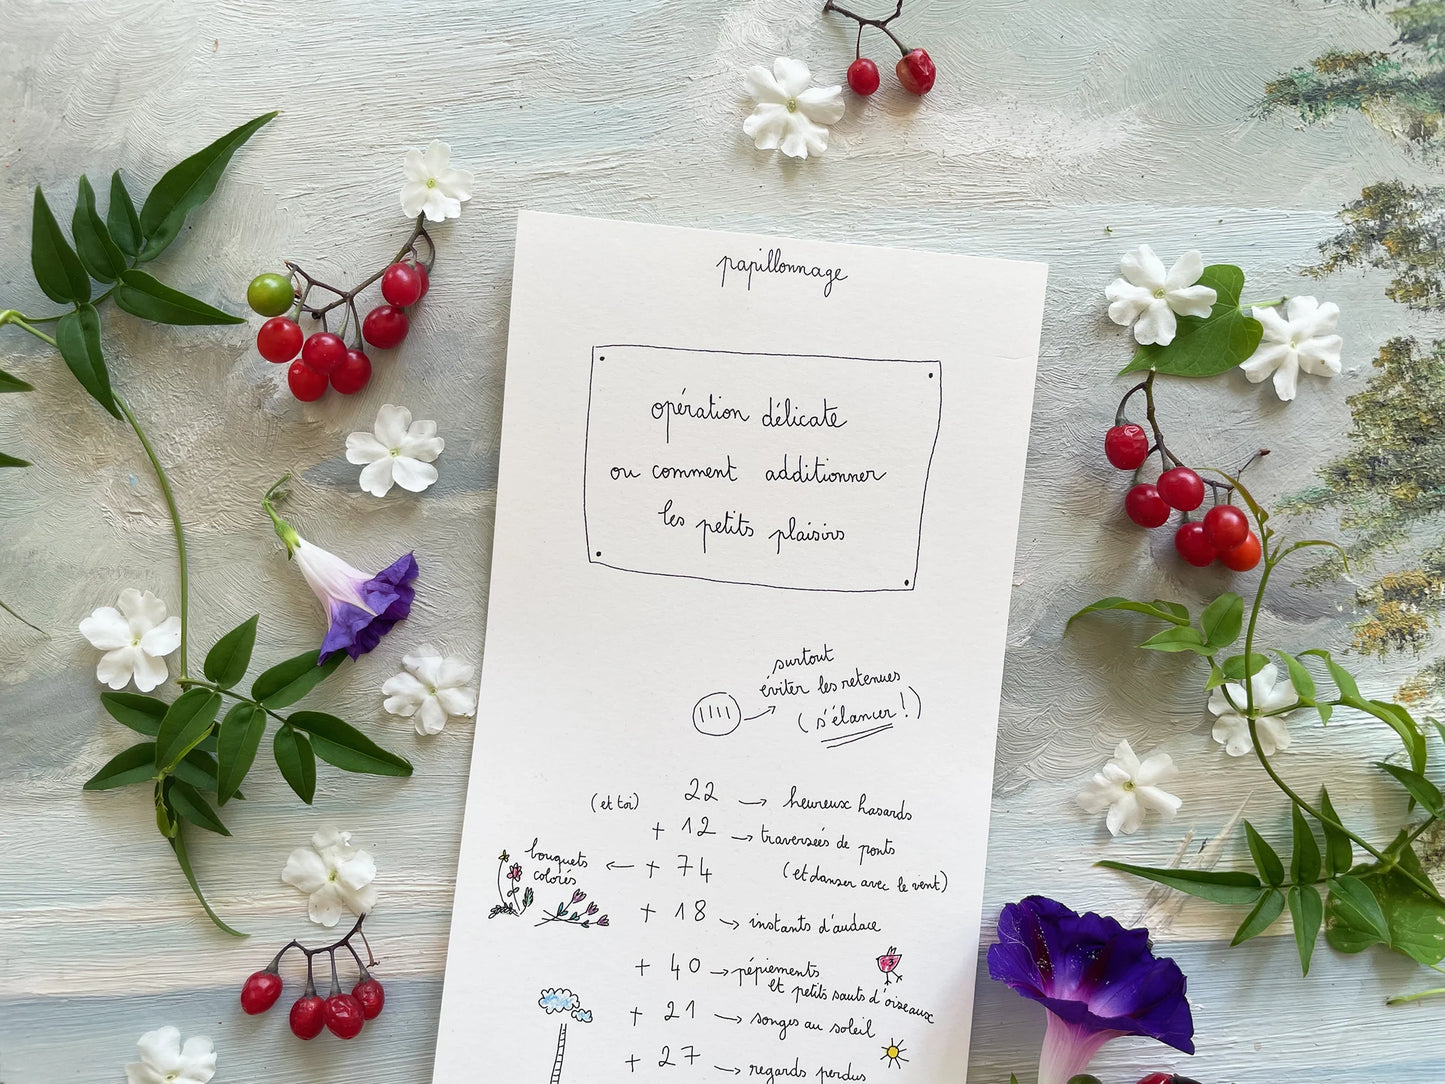 papillonnage
opération délicate
ou comment additionner
les petits plaisirs
surtout
éviter les retenues
(s'élancer !)
(et toi) 22 → heureux hasards
+ 12 → traversées de ponts
(et danser avec le vent)
bouquets colorés ← + 74
+ 18 → instants d'audace
+ 40 → pépiements
et petits sauts d'oiseaux
+ 21 → songes au soleil
+ 27 → regards perdus